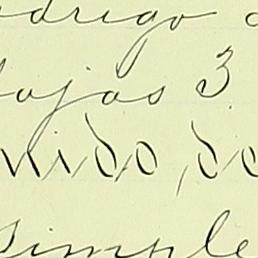 odrigo
fojas 3
vido, do
simple